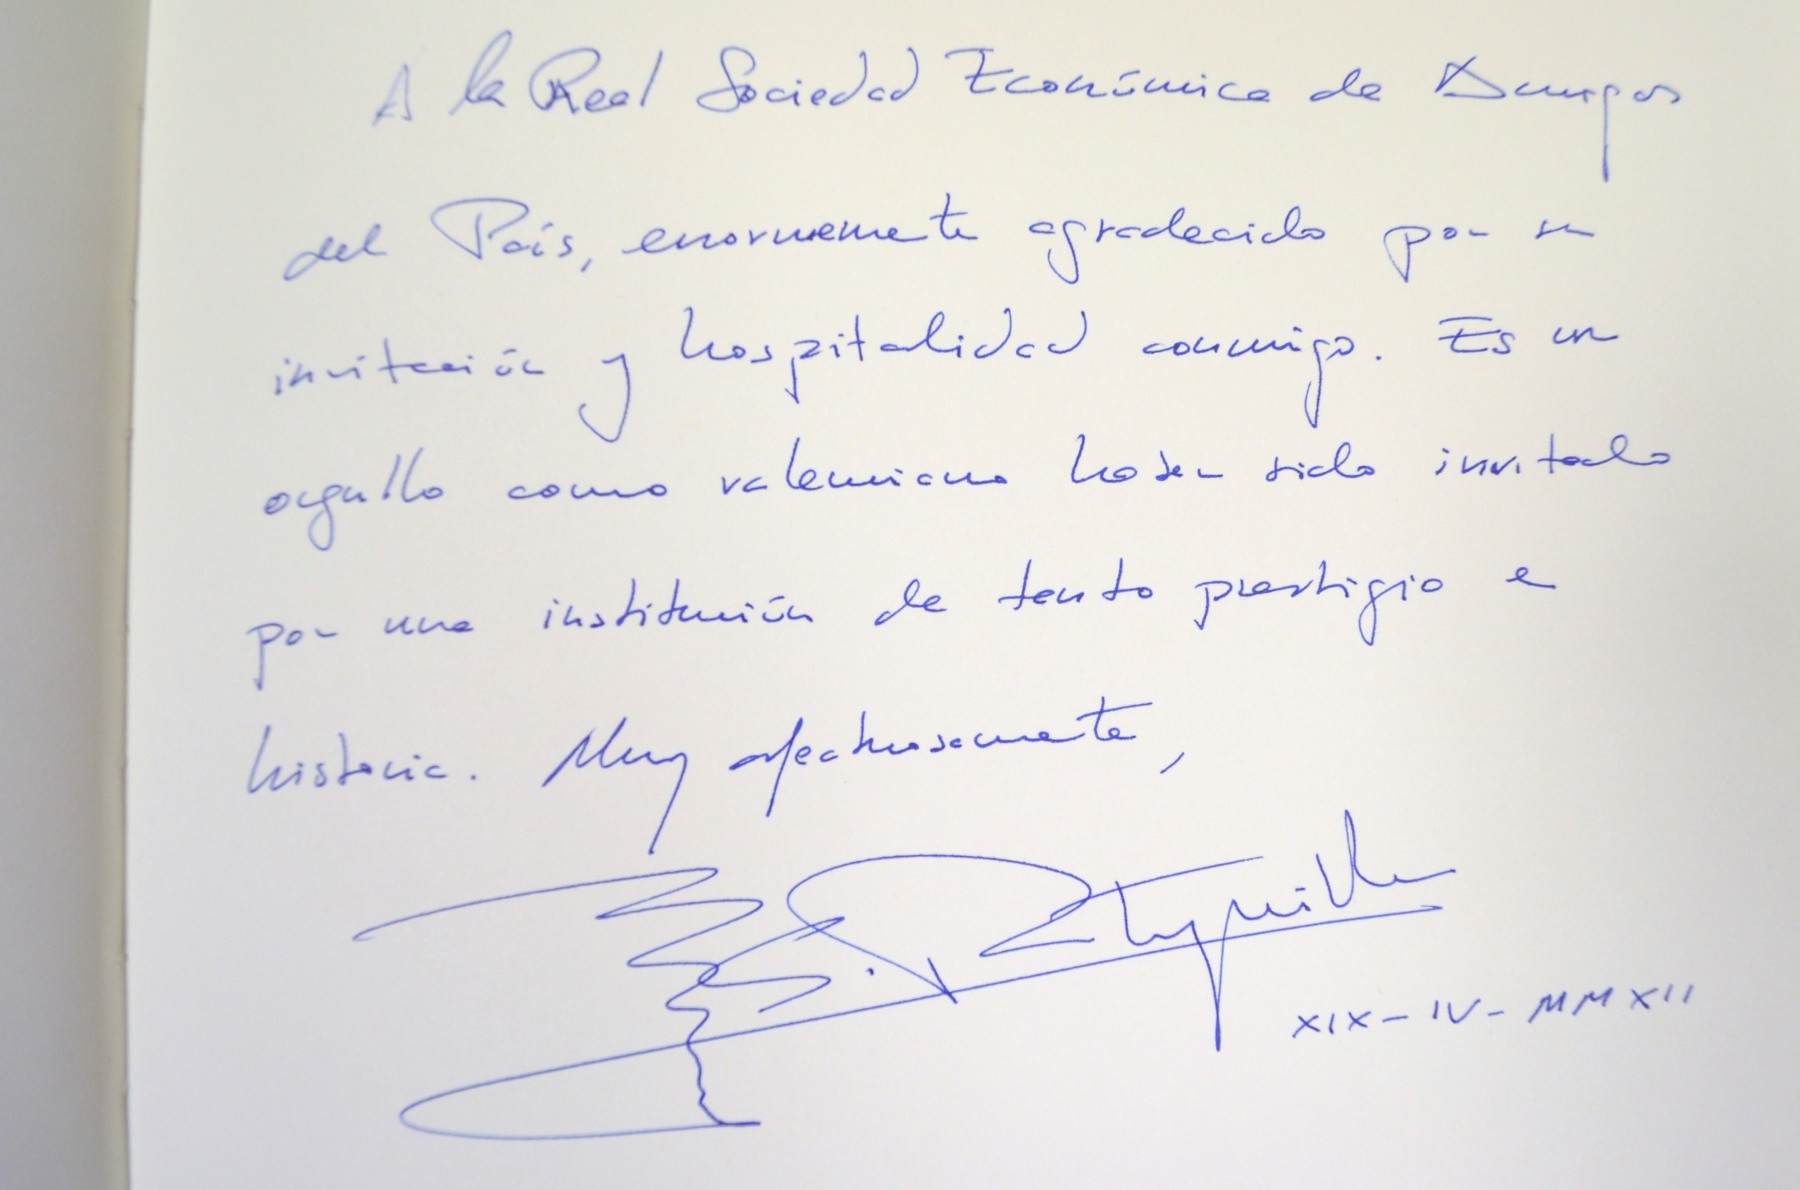 A la Real Sociedad Económica de Amigos
del País, enormemente agradecido por su
invitación y hospitalidad conmigo. Es un
orgullo como valenciano haber sido invitado
por una institución de tanto prestigio e
historia. Muy afectuosamente,
XIX-IV-MMXII